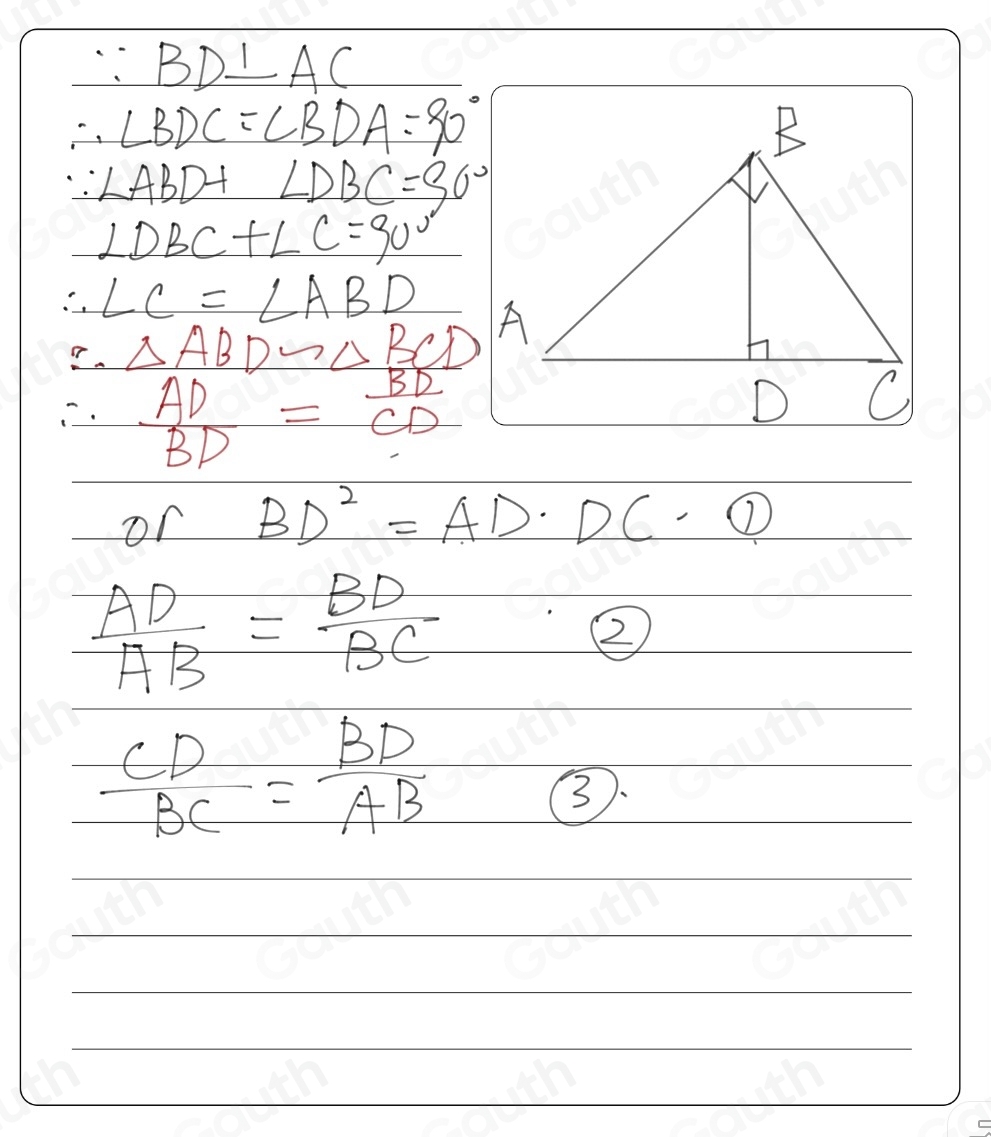 ∵ BD⊥AC
∴ ∠BDC=∠BDA=90°
∵ ∠ABD+ ∠DBC=90°
∠DBC+∠C=90°
∴ ∠C = ∠ABD
∴ △ABD∽△BCD
∴ AD/BD = BD/CD
or BD² = AD · DC · ①
AD/AB = BD/BC · ②
CD/BC = BD/AB ③.
B
A
D
C
Gauth